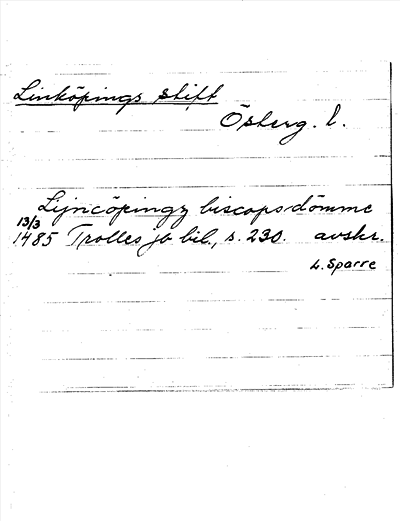 Linköpings stift
Österg. l.
Lijncöpingz biscopsdömme
13/3
1485 Trolles jb bil., s. 230. avskr.
L. Sparre